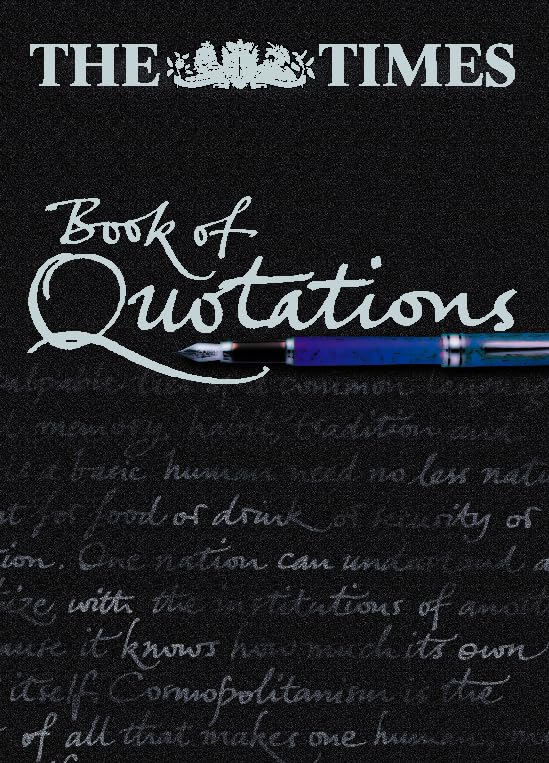 THE TIMES
Book of
Quotations
common
memory, habit, tradition and
a basic human need no less
for food or drink or security or
One nation can understand
with the institutions of
it knows how much its own
itself. Cosmopolitanism is the
of all that makes one human,